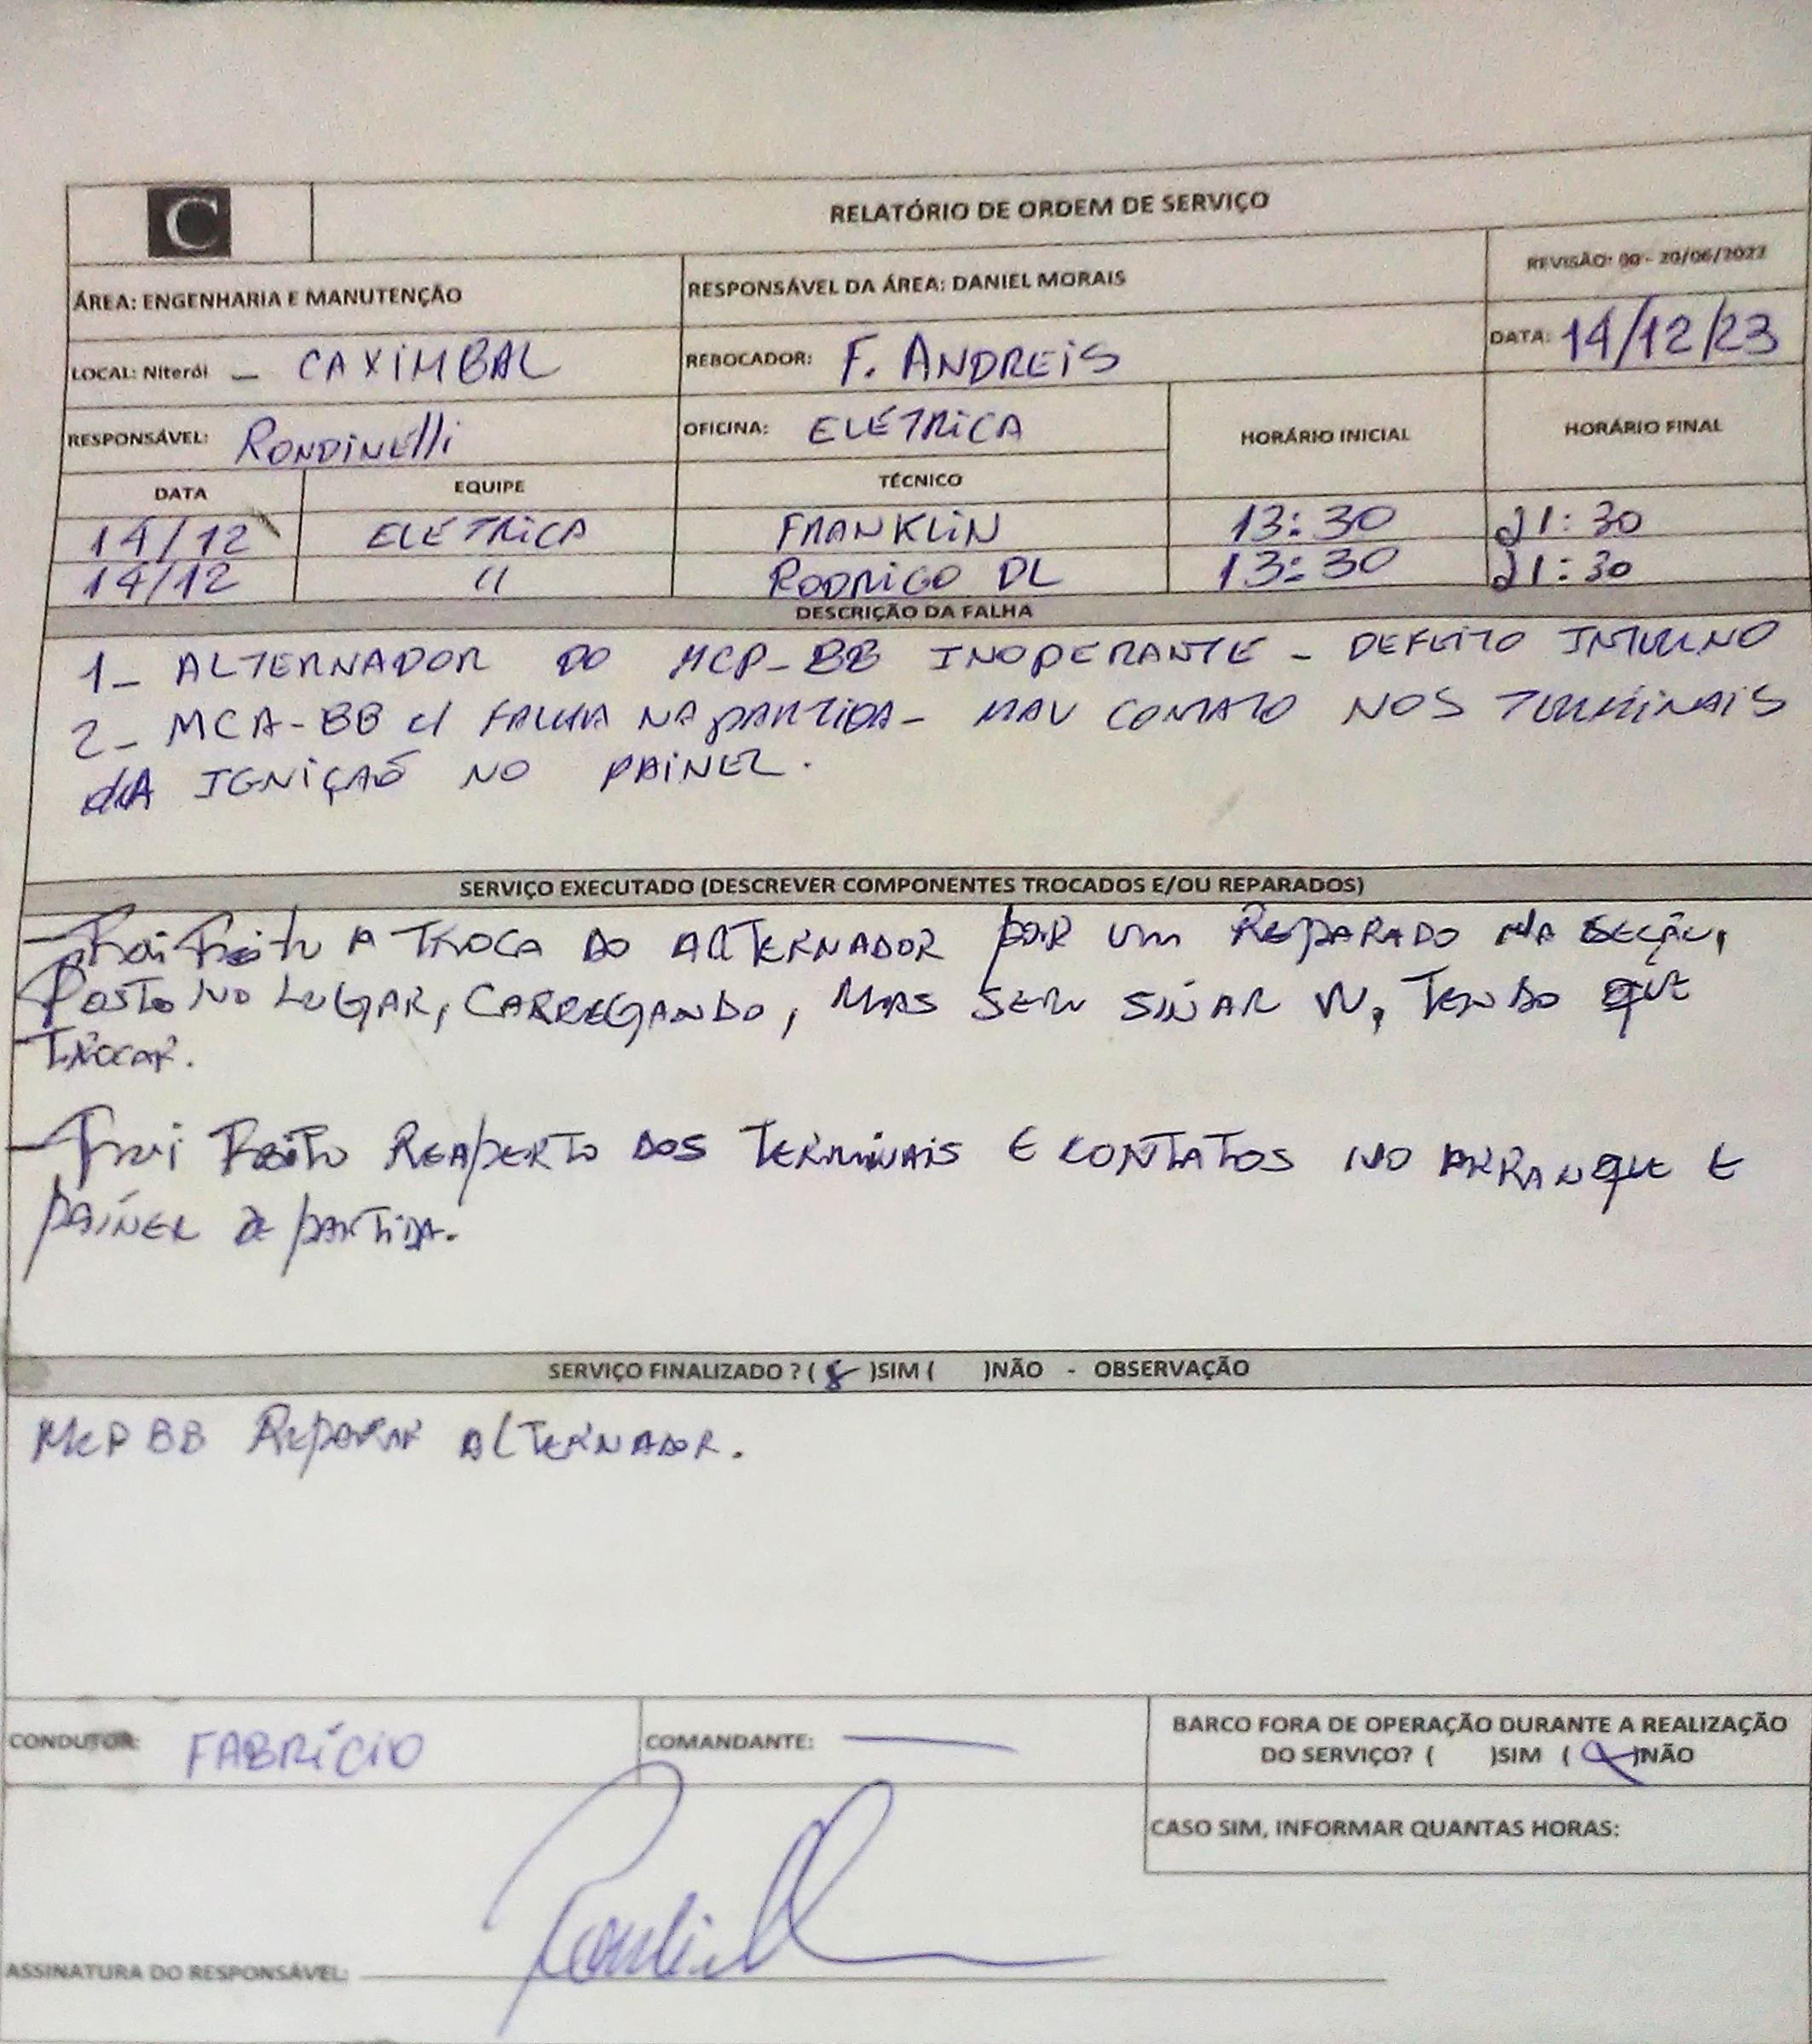 C
RELATÓRIO DE ORDEM DE SERVIÇO
ÁREA: ENGENHARIA E MANUTENÇÃO
RESPONSÁVEL DA ÁREA: DANIEL MORAIS
REVISÃO: 00 - 20/06/2022
LOCAL: Niterói - CAXIMBAL
REBOCADOR: F. ANDREIS
DATA: 14/12/23
RESPONSÁVEL: RONDINElli
OFICINA: ELÉTRICA
HORÁRIO INICIAL
HORÁRIO FINAL
DATA EQUIPE TÉCNICO
14/12 ELÉTRICA FRANKLIN 13:30 21:30
14/12 " RODRIGO DL 13:30 21:30
DESCRIÇÃO DA FALHA
1- ALTERNADOR DO MCP-BB INOPERANTE - DEFEITO INTERNO
2- MCA-BB c/ FALHA NA PARTIDA - MAU CONTATO NOS TERMINAIS
dA IGNIÇAÕ NO PAINEL.
SERVIÇO EXECUTADO (DESCREVER COMPONENTES TROCADOS E/OU REPARADOS)
- Foi Feito A TROCA DO AlTERNADOR POR UM REPARADO NA SEÇÃO,
POSTO NO LUGAR, CARREGANDO, MAS SEM SINAR W, TENDO QUE
TROCAR.
- Foi Feito REAPERTO DOS TERMINAIS E CONTATOS NO ARRANQUE E
PAINEL DE PARTIDA.
SERVIÇO FINALIZADO ? ( X )SIM ( )NÃO - OBSERVAÇÃO
MCP BB REPARAR ALTERNADOR.
CONDUTOR: FABRÍCIO
COMANDANTE: —
BARCO FORA DE OPERAÇÃO DURANTE A REALIZAÇÃO
DO SERVIÇO? ( )SIM ( X )NÃO
CASO SIM, INFORMAR QUANTAS HORAS:
ASSINATURA DO RESPONSÁVEL: